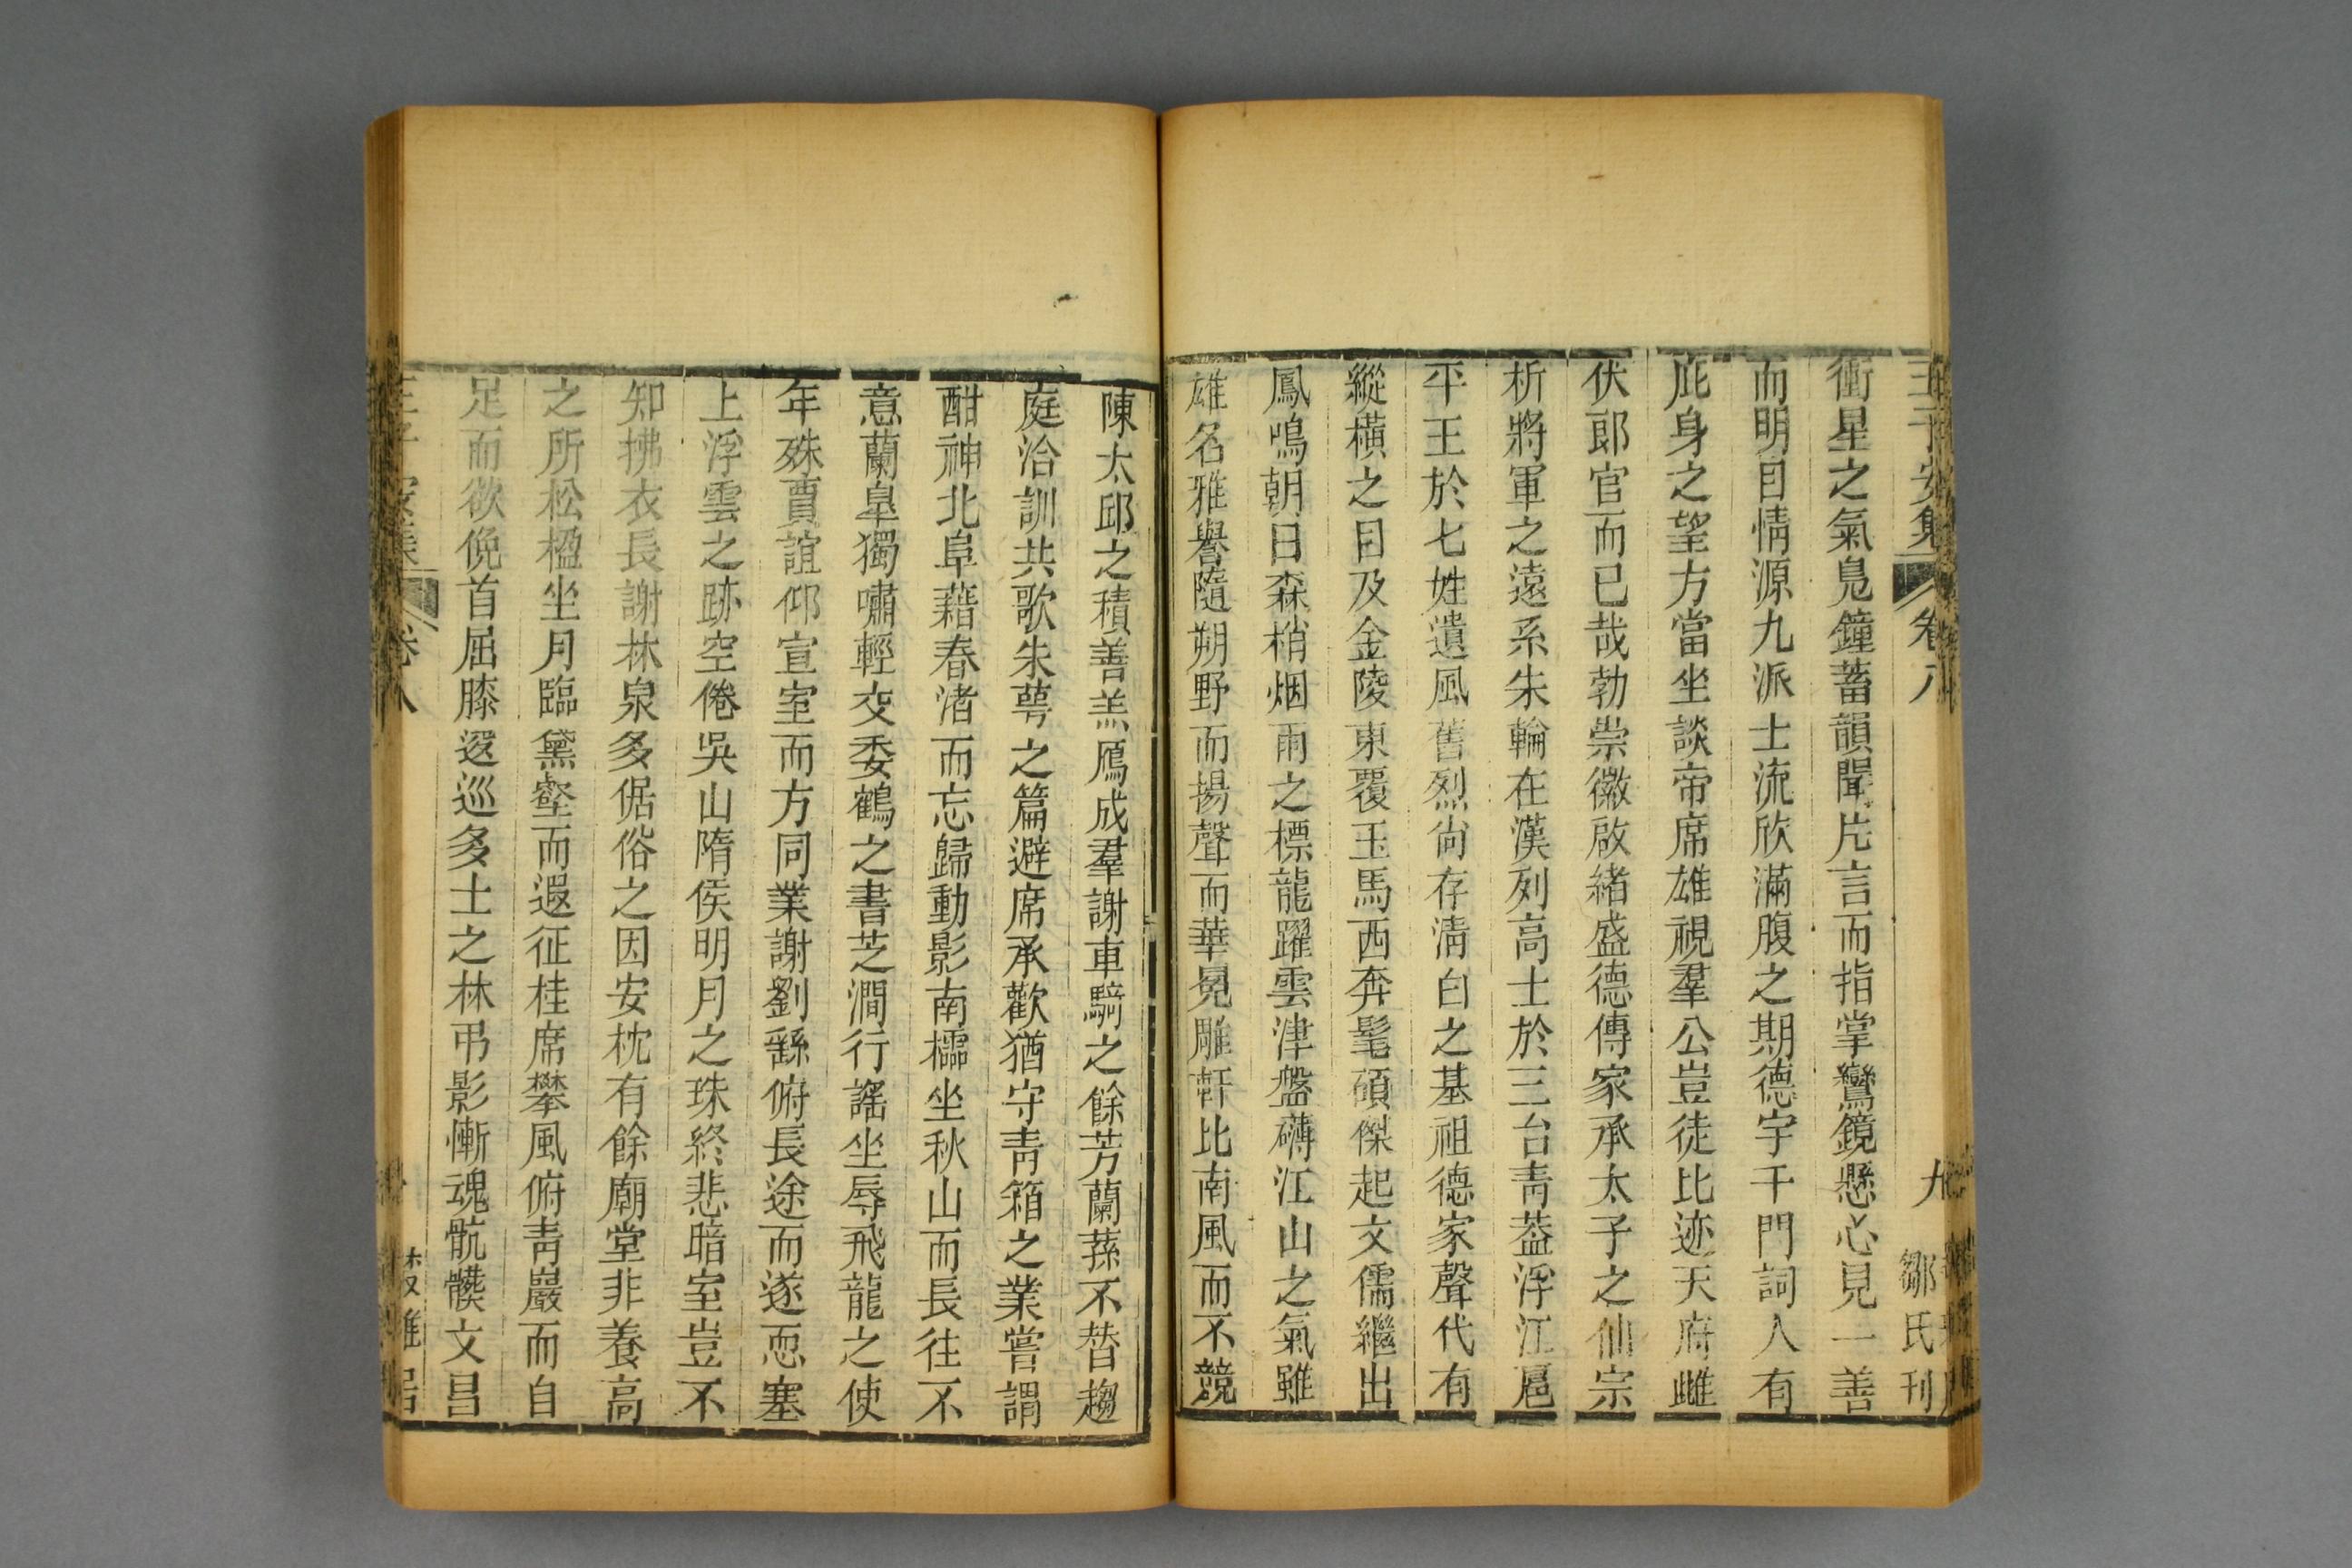 王子安集 卷八 九 鄒氏刊
衝星之氣鳧鐘蓄韻聞片言而指掌鸞鏡懸心見一善
而明目情源九派士流欣滿腹之期德宇千門詞人有
庇身之望方當坐談帝席雄視羣公豈徒比迹天府雌
伏郎官而已哉勃崇徽啟緒盛德傳家承太子之仙宗
析將軍之遠系朱輪在漢列高士於三台青葢浮江扈
平王於七姓遺風舊烈尙存清白之基祖德家聲代有
縱橫之目及金陵東覆玉馬西奔髦碩傑起文儒繼出
鳳鳴朝日森梢烟雨之標龍躍雲津盤礴江山之氣雖
雄名雅譽隨朔野而揚聲而華冕雕軒比南風而不競
陳太邱之積善羔鴈成羣謝車騎之餘芳蘭蓀不替趨
庭洽訓共歌朱萼之篇避席承歡猶守青箱之業嘗謂
酣神北阜藉春渚而忘歸動影南櫺坐秋山而長往不
意蘭皐獨嘯輕交委鶴之書芝澗行謠坐辱飛龍之使
年殊賈誼仰宣室而方同業謝劉繇俯長途而遂恧塞
上浮雲之跡空倦吳山隋侯明月之珠終悲暗室豈不
知拂衣長謝林泉多倨俗之因安枕有餘廟堂非養高
之所松楹坐月臨黛壑而遐征桂席攀風俯靑巖而自
足而欲俛首屈膝逡巡多士之林弔影慚魂骯髒文昌
卷八